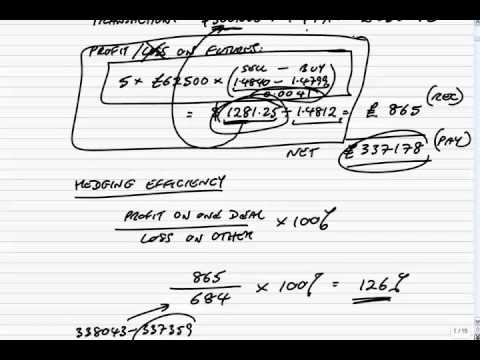 PROFIT/LOSS ON FUTURES:
SELL - BUY
5 × £62500 × (1.4840 - 1.4799)
0.0041
= $1281.25 ÷ 1.4812 = £ 865 (REC)
NET £337178 (PAY)
HEDGING EFFICIENCY
PROFIT ON ONE DEAL
LOSS ON OTHER
× 100%
865
684
× 100% = 126%
338043 - 337359
1 / 15